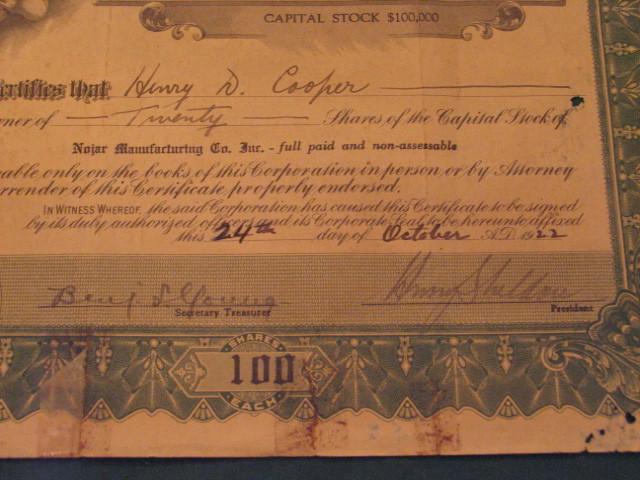 CAPITAL STOCK $100,000
ertifies that Henry D. Cooper
ner of Twenty Shares of the Capital Stock of
Nojar Manufacturing Co. Inc. - full paid and non-assessable
able only on the books of this Corporation in person or by Attorney
rrender of this Certificate properly endorsed.
IN WITNESS WHEREOF, the said Corporation has caused this Certificate to be signed
by its duty authorized officers and its Corporate Seal to be hereunto affixed
this 24th day of October A.D. 1922
Benj S. Young Henry Sheldon
Secretary Treasurer President
SHARES
100
EACH